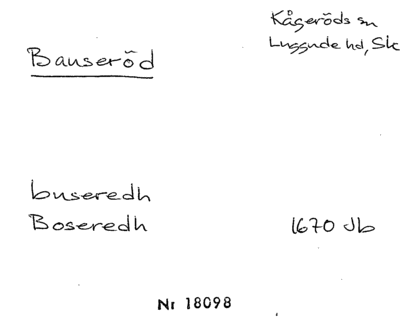 Kågeröds sn
Luggude hd, Sk
Bauseröd
buseredh
Boseredh 1670 Jb
Nr 18098